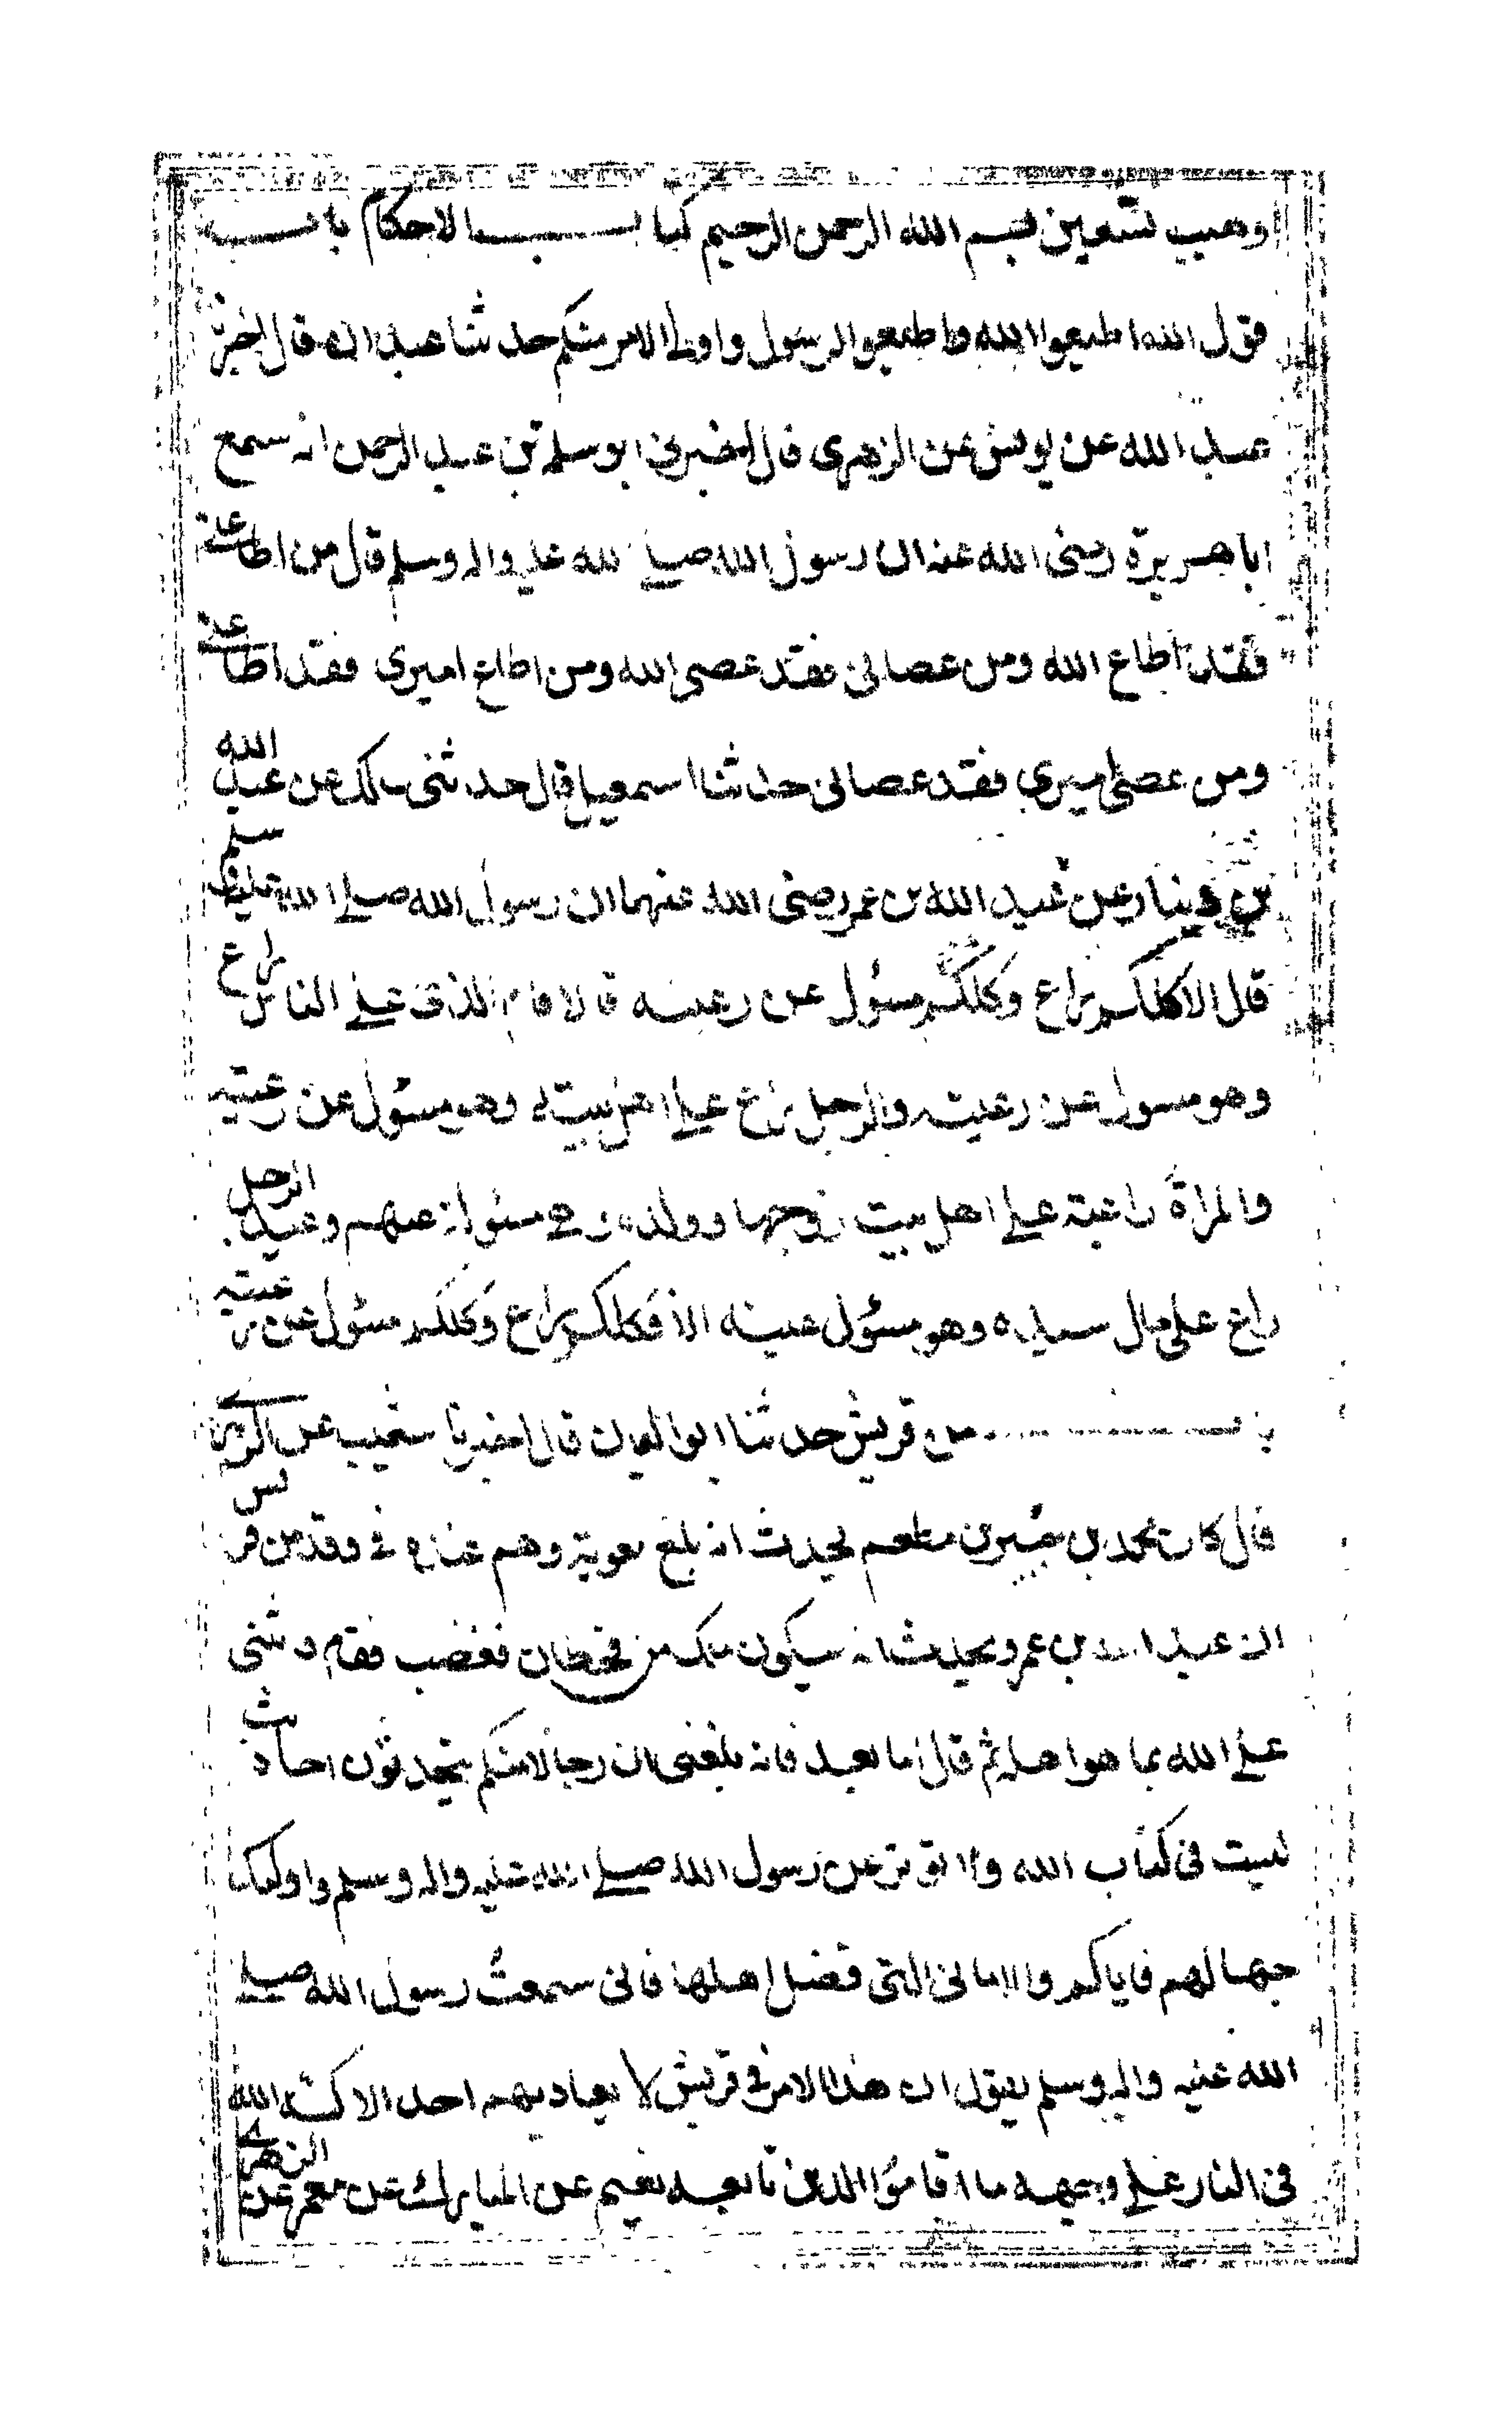 وهب تسعين بسم الله الرحمن الرحيم كتاب الاحكام باب
قول الله اطيعوا الله واطيعوا الرسول واولى الامر منكم حدثنا عبدان قال اخبرنا
عبد الله عن يونس عن الزهرى قال اخبرنى ابو سلمة بن عبد الرحمن انه سمع
ابا هريرة رضى الله عنه ان رسول الله صلى الله عليه واله وسلم قال من اطاعنى
فقد اطاع الله ومن عصانى فقد عصى الله ومن اطاع اميرى فقد اطاعنى
ومن عصى اميرى فقد عصانى حدثنا اسمعيل قال حدثنى مالك عن عبد الله
بن دينار عن عبد الله بن عمر رضى الله عنهما ان رسول الله صلى الله عليه وسلم
قال الا كلكم راع وكلكم مسؤل عن رعيته فالامام الذى على الناس راع
وهو مسول عن رعيته والرجل راع على اهل بيته وهو مسؤل عن رعيته
والمراة راعية على اهل بيت زوجها وولده وهى مسئولة عنهم وعبد الرجل
راع على مال سيده وهو مسؤل عنه الا فكلكم راع وكلكم مسؤل عن رعيته
باب من قريش حدثنا ابو اليمان قال اخبرنا شعيب عن الزهرى
قال كان محمد بن جبير بن مطعم يحدث انه بلغ معوية وهم عنده فى وفد من قريش
ان عبد الله بن عمرو يحدث انه سيكون ملك من قحطان فغضب فقام فاثنى
على الله بما هو اهله ثم قال اما بعد فانه بلغنى ان رجالا منكم يتحدثون احاديث
ليست فى كتاب الله ولا توثر عن رسول الله صلى الله عليه واله وسلم واولئك
جهالهم فاياكم والامانى التى تضل اهلها فانى سمعت رسول الله صلى
الله عليه واله وسلم يقول ان هذا الامر فى قريش لا يعاديهم احد الا كبه الله
فى النار على وجهه ما اقاموا الدين تابعه نعيم عن المبارك عن معمر عن الزهرى